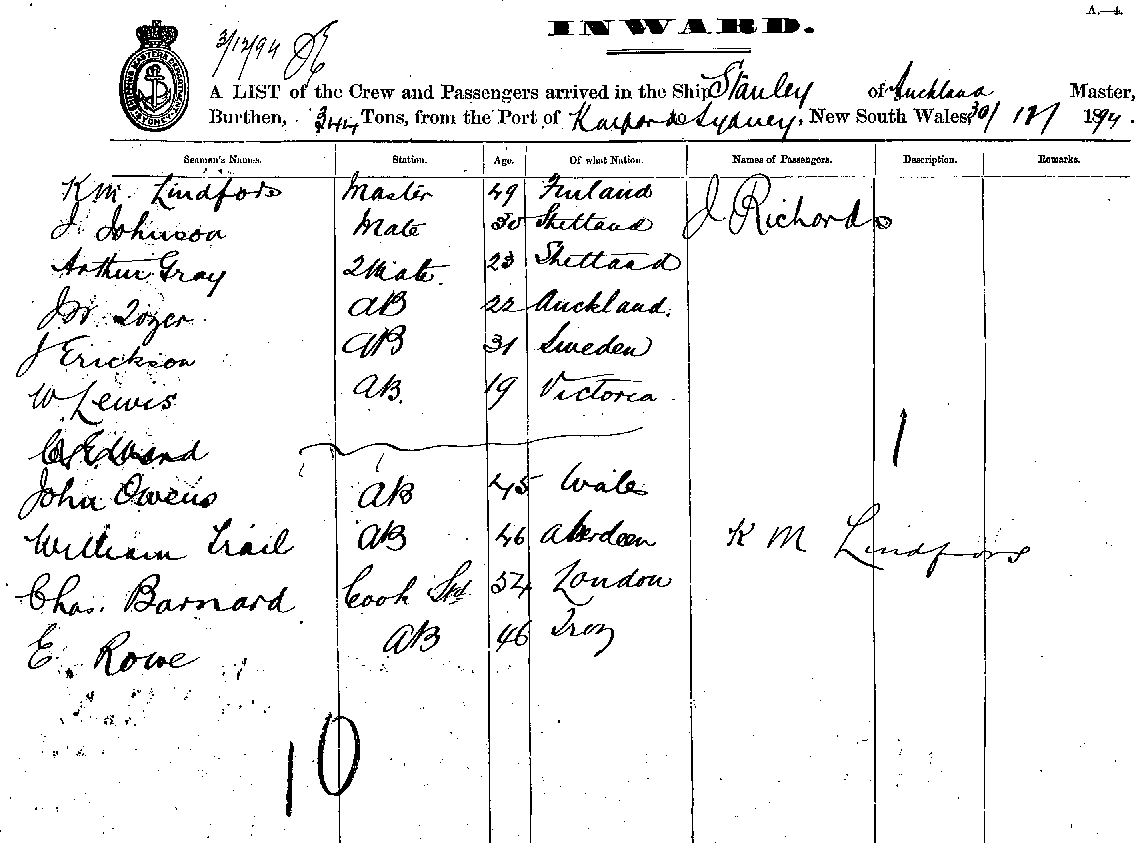 A.—4.
INWARD.
3/12/94
A LIST of the Crew and Passengers arrived in the Ship Stanley of Auckland Master,
Burthen, 344 Tons, from the Port of to Sydney, New South Wales, 30/ 12/ 1894.
Seamen's Names. Station. Age. Of what Nation. Names of Passengers. Description. Remarks.
K M Lindfors Master 49 Finland J Richards
J. Johnson Mate 30 Shetland
Arthur Gray 2 Mate. 23 Shetland
J W Tozer AB 22 Auckland.
J Erickson AB 31 Sweden
W Lewis AB. 19 Victoria
1
John Owens AB 45 Wales
William Trail AB 46 Aberdeen K M Lindfors
Chas. Barnard Cook Std 54 London
E. Rowe AB 46 Troy
10